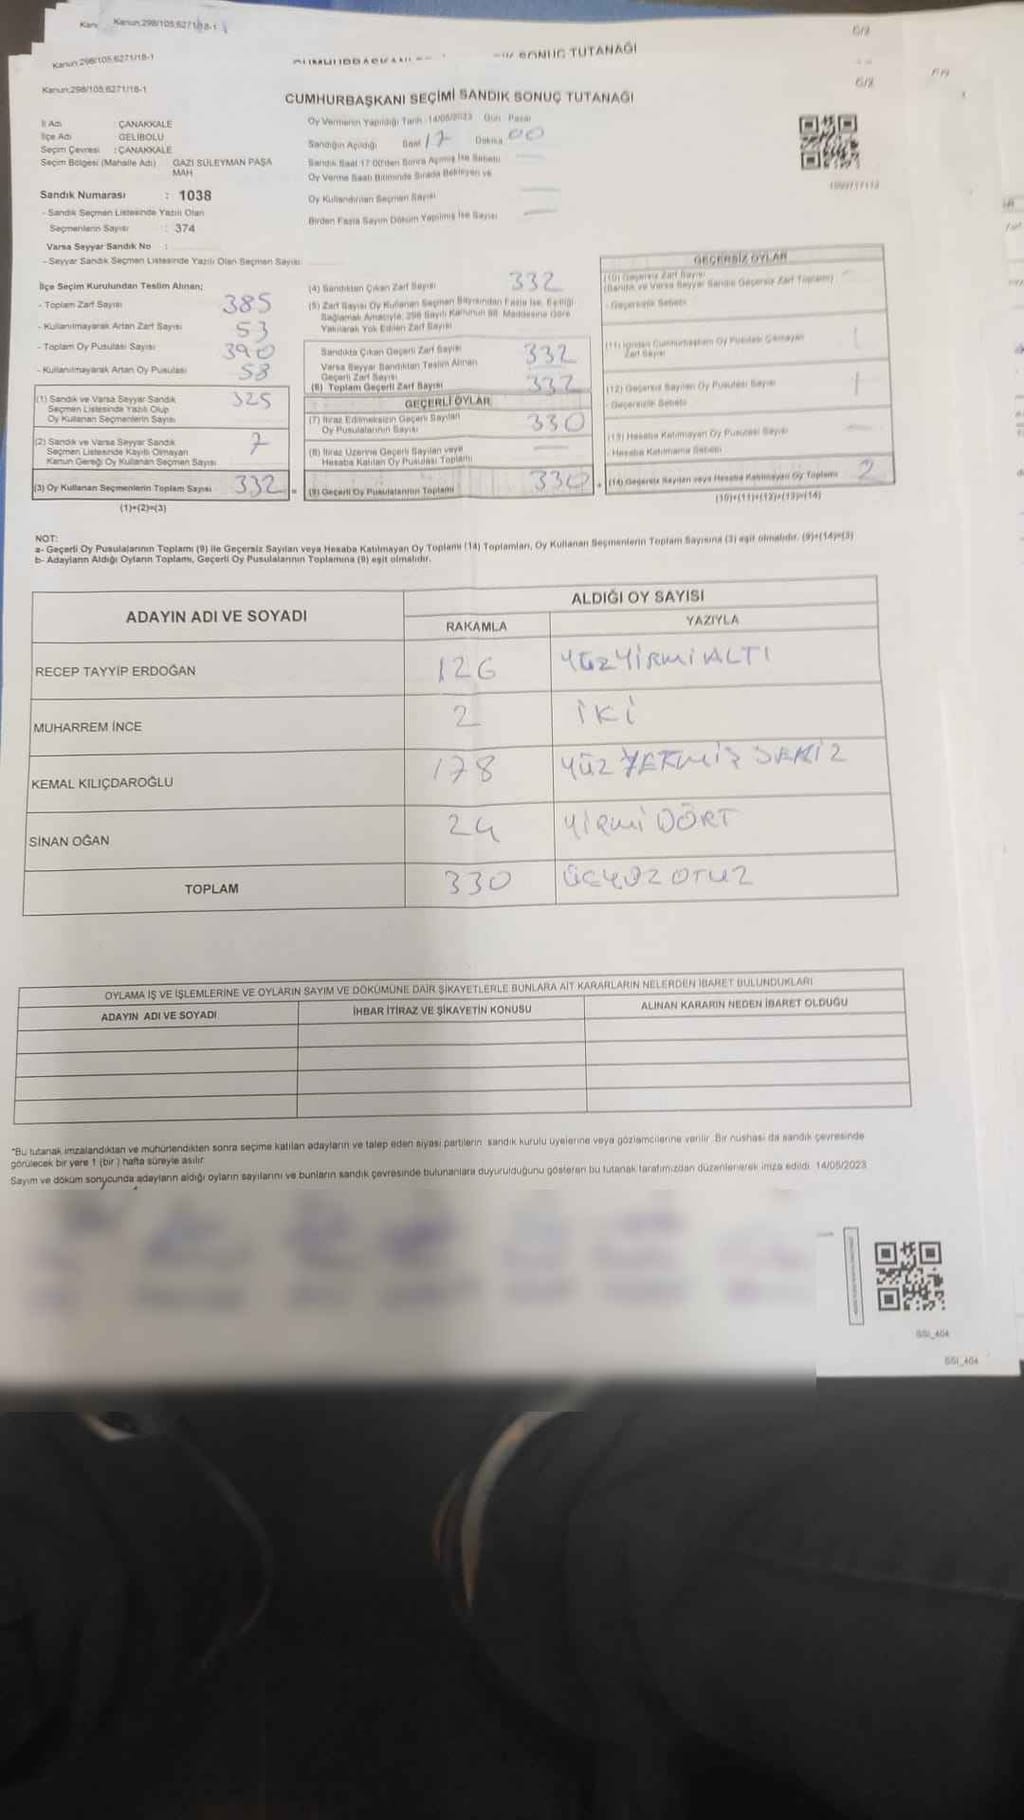 Kanun:298/105;6271/18-1
Kanun:298/105;6271/18-1
Kanun:298/105;6271/18-1
SONUÇ TUTANAĞI
CUMHURBAŞKANI SEÇİMİ SANDIK SONUÇ TUTANAĞI
İl Adı : ÇANAKKALE
İlçe Adı GELİBOLU
Seçim Çevresi : ÇANAKKALE
Seçim Bölgesi (Mahalle Adı) GAZİ SÜLEYMAN PAŞA
MAH
Sandık Numarası : 1038
- Sandık Seçmen Listesinde Yazılı Olan
Seçmenlerin Sayısı : 374
Varsa Seyyar Sandık No :
- Seyyar Sandık Seçmen Listesinde Yazılı Olan Seçmen Sayısı
Oy Vermenin Yapıldığı Tarih 14/05/2023 Gün Pazar
Sandığın Açıldığı Saat 17 Dakika 00
Sandık Saat 17:00'den Sonra Açılmış İse Sebebi
Oy Verme Saati Bitiminde Sırada Bekleyen ve
Oy Kullandırılan Seçmen Sayısı
Birden Fazla Sayım Döküm Yapılmış İse Sayısı
İlçe Seçim Kurulundan Teslim Alınan;
- Toplam Zarf Sayısı 385
- Kullanılmayarak Artan Zarf Sayısı 53
- Toplam Oy Pusulası Sayısı 390
- Kullanılmayarak Artan Oy Pusulası 58
(1) Sandık ve Varsa Seyyar Sandık 325
Seçmen Listesinde Yazılı Olup
Oy Kullanan Seçmenlerin Sayısı
(2) Sandık ve Varsa Seyyar Sandık 7
Seçmen Listesinde Kayıtlı Olmayan
Kanun Gereği Oy Kullanan Seçmen Sayısı
(3) Oy Kullanan Seçmenlerin Toplam Sayısı 332
(1)+(2)=(3)
(4) Sandıktan Çıkan Zarf Sayısı 332
(5) Zarf Sayısı Oy Kullanan Seçmen Sayısından Fazla İse, Eşitliği
Sağlamak Amacıyla, 298 Sayılı Kanunun 98. Maddesine Göre
Yakılarak Yok Edilen Zarf Sayısı
Sandıkta Çıkan Geçerli Zarf Sayısı 332
Varsa Seyyar Sandıktan Teslim Alınan
Geçerli Zarf Sayısı
(6) Toplam Geçerli Zarf Sayısı 332
GEÇERLİ OYLAR
(7) İtiraz Edilmeksizin Geçerli Sayılan 330
Oy Pusulalarının Sayısı
(8) İtiraz Üzerine Geçerli Sayılan veya
Hesaba Katılan Oy Pusulası Toplamı
(9) Geçerli Oy Pusulalarının Toplamı 330
GEÇERSİZ OYLAR
(10) Geçersiz Zarf Sayısı
(Sandık ve Varsa Seyyar Sandık Geçersiz Zarf Toplamı)
- Geçersizlik Sebebi
(11) İçinden Cumhurbaşkanı Oy Pusulası Çıkmayan 1
Zarf Sayısı
(12) Geçersiz Sayılan Oy Pusulası Sayısı 1
- Geçersizlik Sebebi
(13) Hesaba Katılmayan Oy Pusulası Sayısı
- Hesaba Katılmama Sebebi
(14) Geçersiz Sayılan veya Hesaba Katılmayan Oy Toplamı 2
(10)+(11)+(12)+(13)=(14)
NOT:
a- Geçerli Oy Pusulalarının Toplamı (9) ile Geçersiz Sayılan veya Hesaba Katılmayan Oy Toplamı (14) Toplamları, Oy Kullanan Seçmenlerin Toplam Sayısına (3) eşit olmalıdır. (9)+(14)=(3)
b- Adayların Aldığı Oyların Toplamı, Geçerli Oy Pusulalarının Toplamına (9) eşit olmalıdır.
ADAYIN ADI VE SOYADI ALDIĞI OY SAYISI
RAKAMLA YAZIYLA
RECEP TAYYİP ERDOĞAN 126 YÜZYİRMİALTI
MUHARREM İNCE 2 İKİ
KEMAL KILIÇDAROĞLU 178 YÜZ YETMİŞ SEKİZ
SİNAN OĞAN 24 YİRMİ DÖRT
TOPLAM 330 ÜÇYÜZ OTUZ
OYLAMA İŞ VE İŞLEMLERİNE VE OYLARIN SAYIM VE DÖKÜMÜNE DAİR ŞİKAYETLERLE BUNLARA AİT KARARLARIN NELERDEN İBARET BULUNDUKLARI
ADAYIN ADI VE SOYADI İHBAR İTİRAZ VE ŞİKAYETİN KONUSU ALINAN KARARIN NEDEN İBARET OLDUĞU
*Bu tutanak imzalandıktan ve mühürlendikten sonra seçime katılan adayların ve talep eden siyasi partilerin sandık kurulu üyelerine veya gözlemcilerine verilir. Bir nüshası da sandık çevresinde
görülecek bir yere 1 (bir) hafta süreyle asılır.
Sayım ve döküm sonucunda adayların aldığı oyların sayılarını ve bunların sandık çevresinde bulunanlara duyurulduğunu gösteren bu tutanak tarafımızdan düzenlenerek imza edildi. 14/05/2023